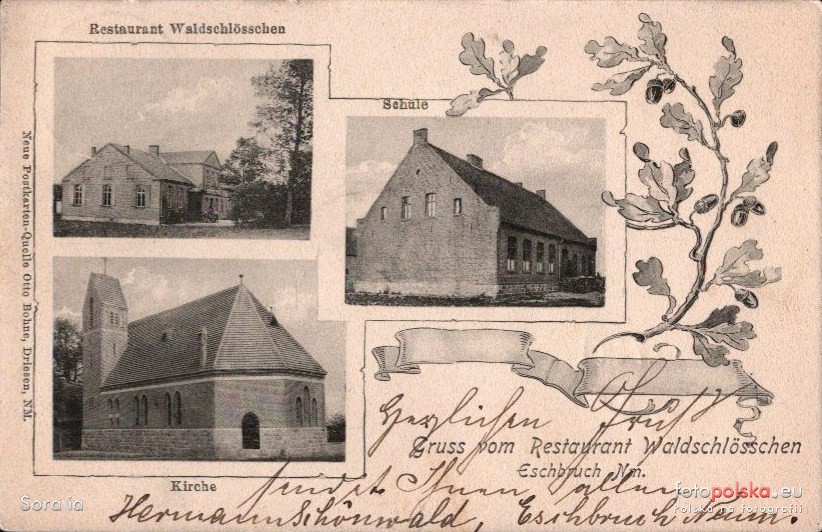 Restaurant Waldschlösschen
Schule
Neue Postkarten-Quelle Otto Bohne, Driesen, NM.
Kirche
Herzlichen Gruß
Gruss vom Restaurant Waldschlösschen
Eschbruch Nm.
sendet Ihnen allen
Hermann Schönwald, Eschbruch
Soravia
fotopolska.eu
Polska na fotografii